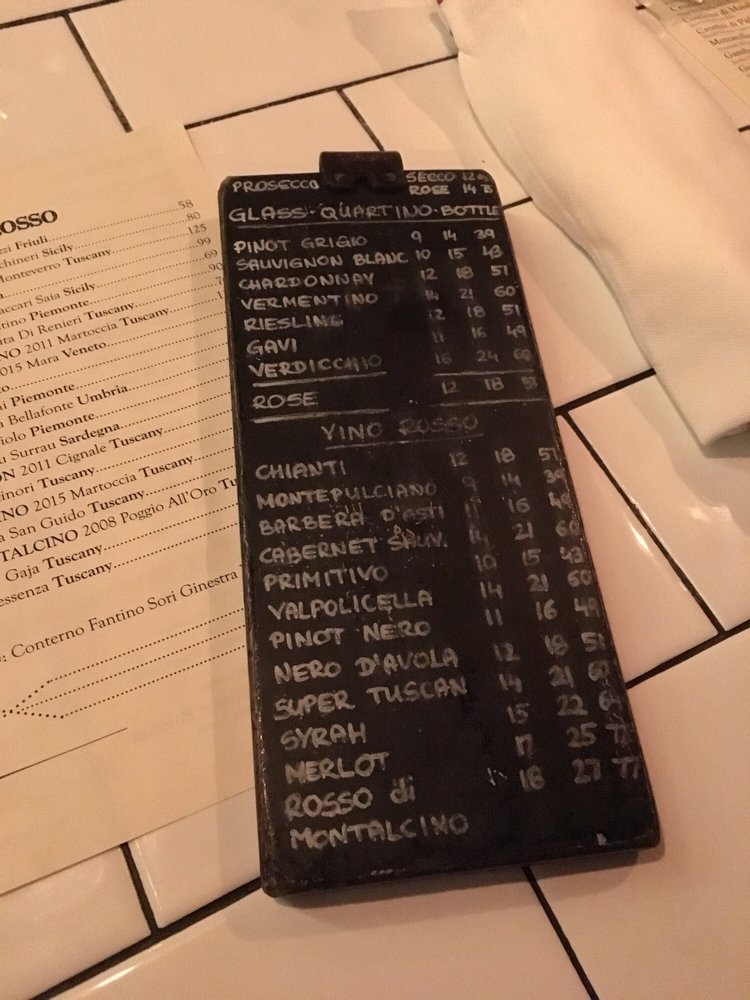 OSSO
zzi Friuli 58
chineri Sicily 80
Monteverro Tuscany 125
99
accari Saia Sicily 69
tino Piemonte 90
ata Di Renieri Tuscany
NO 2011 Martoccia Tuscany
2015 Mara Veneto
ni Piemonte
a Bellafonte Umbria
iolo Piemonte
u Surrau Sardegna
ON 2011 Cignale Tuscany
inori Tuscany
NO 2015 Martoccia Tuscany
a San Guido Tuscany
TALCINO 2008 Poggio All'Oro Tu
Gaja Tuscany
essenza Tuscany
: Conterno Fantino Sori Ginestra
PROSECCO SECCO 12
ROSE 14
GLASS-QUARTINO-BOTTLE
PINOT GRIGIO 9 14 39
SAUVIGNON BLANC 10 15 43
CHARDONNAY 12 18 51
VERMENTINO 14 21 60
RIESLING 12 18 51
GAVI 11 16 49
VERDICCHIO 16 24 68
ROSE 12 18 51
VINO ROSSO
CHIANTI 12 18 51
MONTEPULCIANO 9 14 39
BARBERA D'ASTI 11 16 49
CABERNET SAUV. 14 21 60
PRIMITIVO 10 15 43
VALPOLICELLA 14 21 60
PINOT NERO 11 16 49
NERO D'AVOLA 12 18 51
SUPER TUSCAN 14 21 60
SYRAH 15 22 64
MERLOT 17 25 72
ROSSO di 18 27 77
MONTALCINO